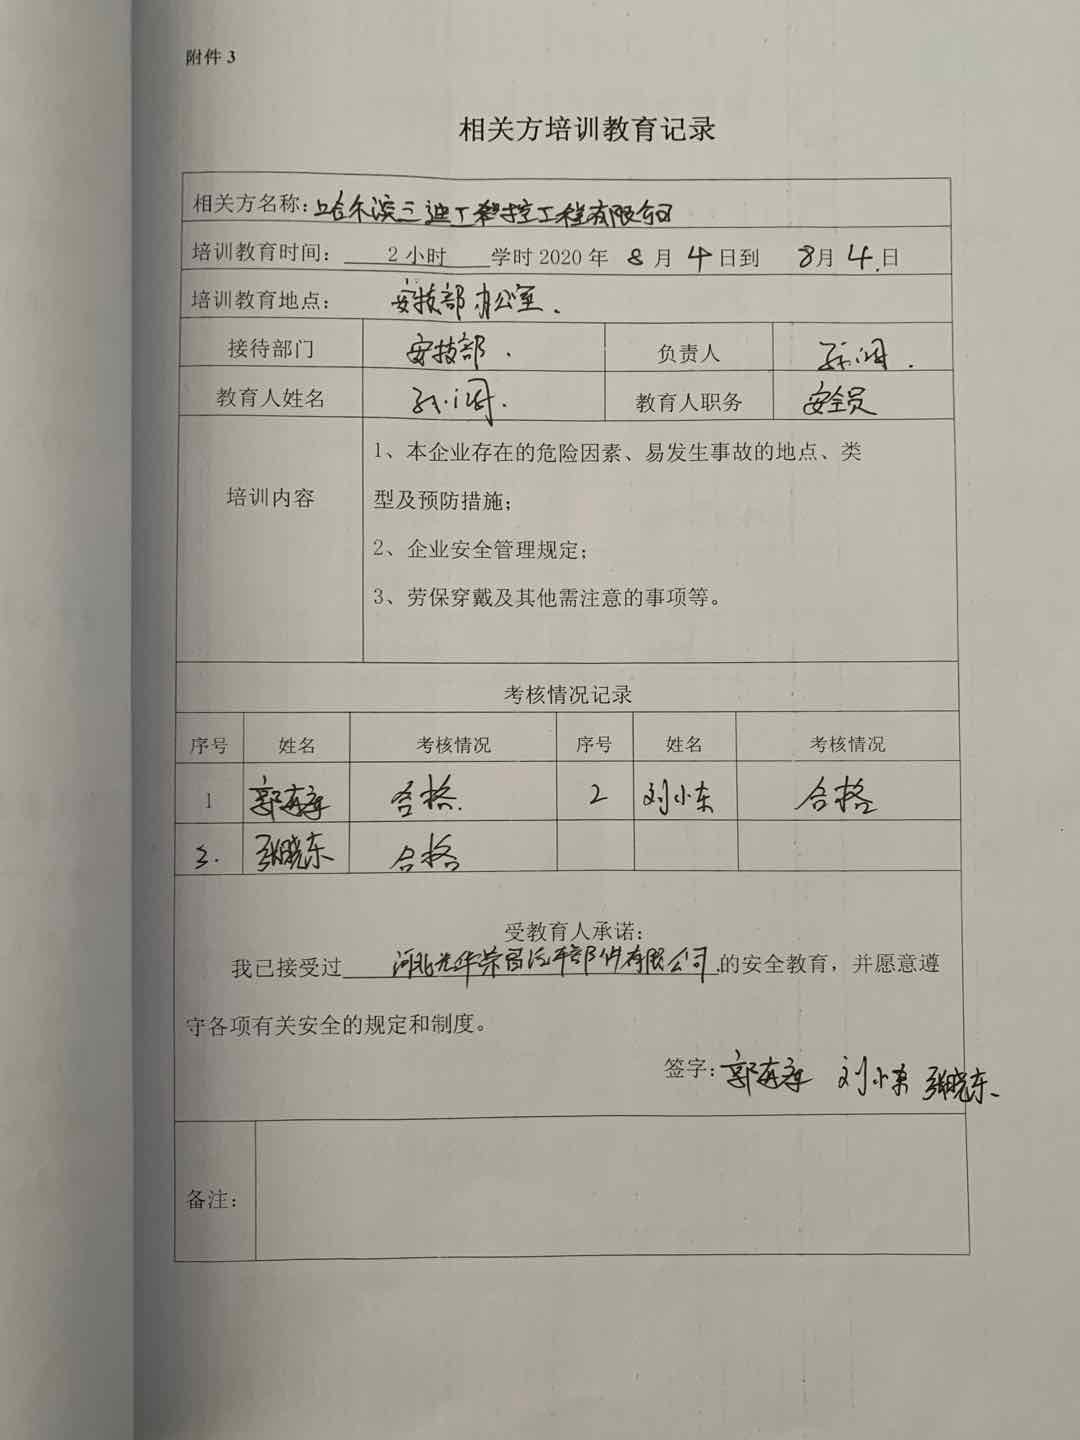 附件 3
相关方培训教育记录
相关方名称：哈尔滨三迪工控工程有限公司
培训教育时间： 2 小时 学时 2020 年 8 月 4 日到 8月 4.日
培训教育地点： 安技部办公室.
接待部门 安技部. 负责人 孙润.
教育人姓名 孙润. 教育人职务 安全员
培训内容
1、本企业存在的危险因素、易发生事故的地点、类
型及预防措施；
2、企业安全管理规定；
3、劳保穿戴及其他需注意的事项等。
考核情况记录
序号 姓名 考核情况 序号 姓名 考核情况
1 郭 合格. 2 刘小东 合格
3. 张晓东 合格
受教育人承诺：
我已接受过 河北光华荣昌汽车部件有限公司 的安全教育，并愿意遵
守各项有关安全的规定和制度。
签字：郭 刘小东 张晓东
备注：